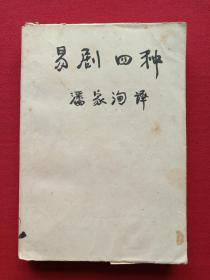 易剧四种
潘家洵译